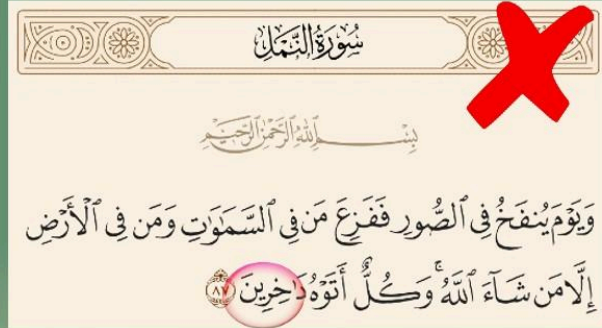 سُورَةُ النَّمْلِ
بِسْمِ اللَّهِ الرَّحْمَٰنِ الرَّحِيمِ
وَيَوْمَ يُنفَخُ فِي ٱلصُّورِ فَفَزِعَ مَن فِي ٱلسَّمَٰوَٰتِ وَمَن فِي ٱلْأَرْضِ
إِلَّا مَن شَآءَ ٱللَّهُ ۚ وَكُلٌّ أَتَوْهُ دَٰخِرِينَ ٨٧